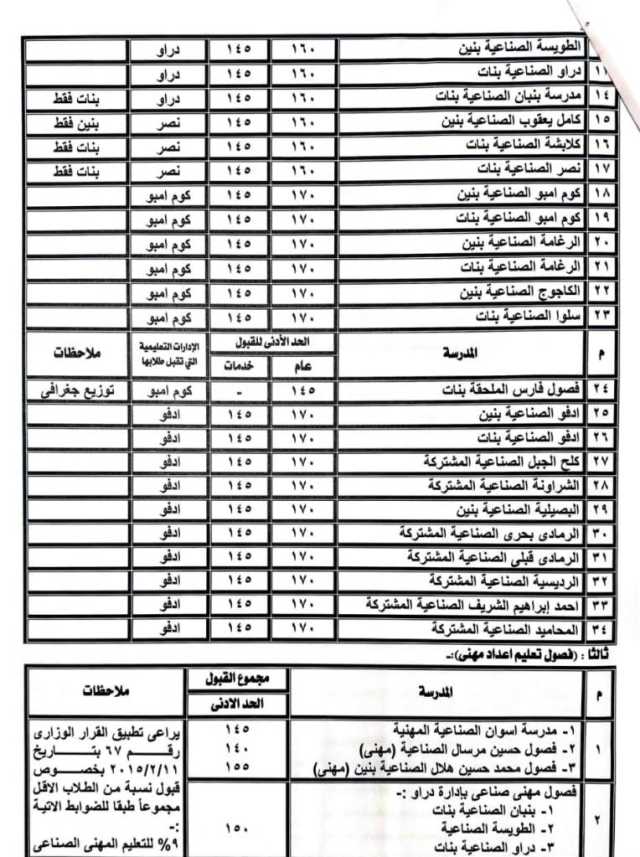 الطويسة الصناعية بنين ١٦٠ ١٤٥ دراو
دراو الصناعية بنات ١٦٠ ١٤٥ دراو
١٤ مدرسة بنبان الصناعية بنات ١٦٠ ١٤٥ دراو بنات فقط
١٥ كامل يعقوب الصناعية بنين ١٦٠ ١٤٥ نصر بنين فقط
١٦ كلابشة الصناعية بنات ١٦٠ ١٤٥ نصر بنات فقط
١٧ نصر الصناعية بنات ١٦٠ ١٤٥ نصر بنات فقط
١٨ كوم امبو الصناعية بنين ١٧٠ ١٤٥ كوم امبو
١٩ كوم امبو الصناعية بنات ١٧٠ ١٤٥ كوم امبو
٢٠ الرغامة الصناعية بنين ١٧٠ ١٤٥ كوم امبو
٢١ الرغامة الصناعية بنات ١٧٠ ١٤٥ كوم امبو
٢٢ الكاجوج الصناعية بنين ١٧٠ ١٤٥ كوم امبو
٢٣ سلوا الصناعية بنات ١٧٠ ١٤٥ كوم امبو
م المدرسة الحد الأدنى للقبول الإدارات التعليمية التي تقبل طلابها ملاحظات
عام خدمات
٢٤ فصول فارس الملحقة بنات ١٤٥ - كوم امبو توزيع جغرافى
٢٥ ادفو الصناعية بنين ١٧٠ ١٤٥ ادفو
٢٦ ادفو الصناعية بنات ١٧٠ ١٤٥ ادفو
٢٧ كلح الجبل الصناعية المشتركة ١٧٠ ١٤٥ ادفو
٢٨ الشراونة الصناعية المشتركة ١٧٠ ١٤٥ ادفو
٢٩ البصيلية الصناعية بنين ١٧٠ ١٤٥ ادفو
٣٠ الرمادى بحرى الصناعية المشتركة ١٧٠ ١٤٥ ادفو
٣١ الرمادى قبلى الصناعية المشتركة ١٧٠ ١٤٥ ادفو
٣٢ الرديسية الصناعية المشتركة ١٧٠ ١٤٥ ادفو
٣٣ احمد إبراهيم الشريف الصناعية المشتركة ١٧٠ ١٤٥ ادفو
٣٤ المحاميد الصناعية المشتركة ١٧٠ ١٤٥ ادفو
ثالثا : (فصول تعليم اعداد مهنى):-
م المدرسة مجموع القبول ملاحظات
الحد الادنى
١
١- مدرسة اسوان الصناعية المهنية ١٤٥
٢- فصول حسين مرسال الصناعية (مهنى) ١٤٠
٣- فصول محمد حسين هلال الصناعية بنين (مهنى) ١٥٥
٢
فصول مهنى صناعى بإدارة دراو :-
١- بنبان الصناعية بنات
٢- الطويسة الصناعية ١٥٠
٣- دراو الصناعية بنات
يراعى تطبيق القرار الوزارى
رقم ٦٧ بتاريخ
٢٠١٥/٢/١١ بخصوص
قبول نسبة من الطلاب الاقل
مجموعاً طبقا للضوابط الاتية
:-
٩% للتعليم المهنى الصناعى